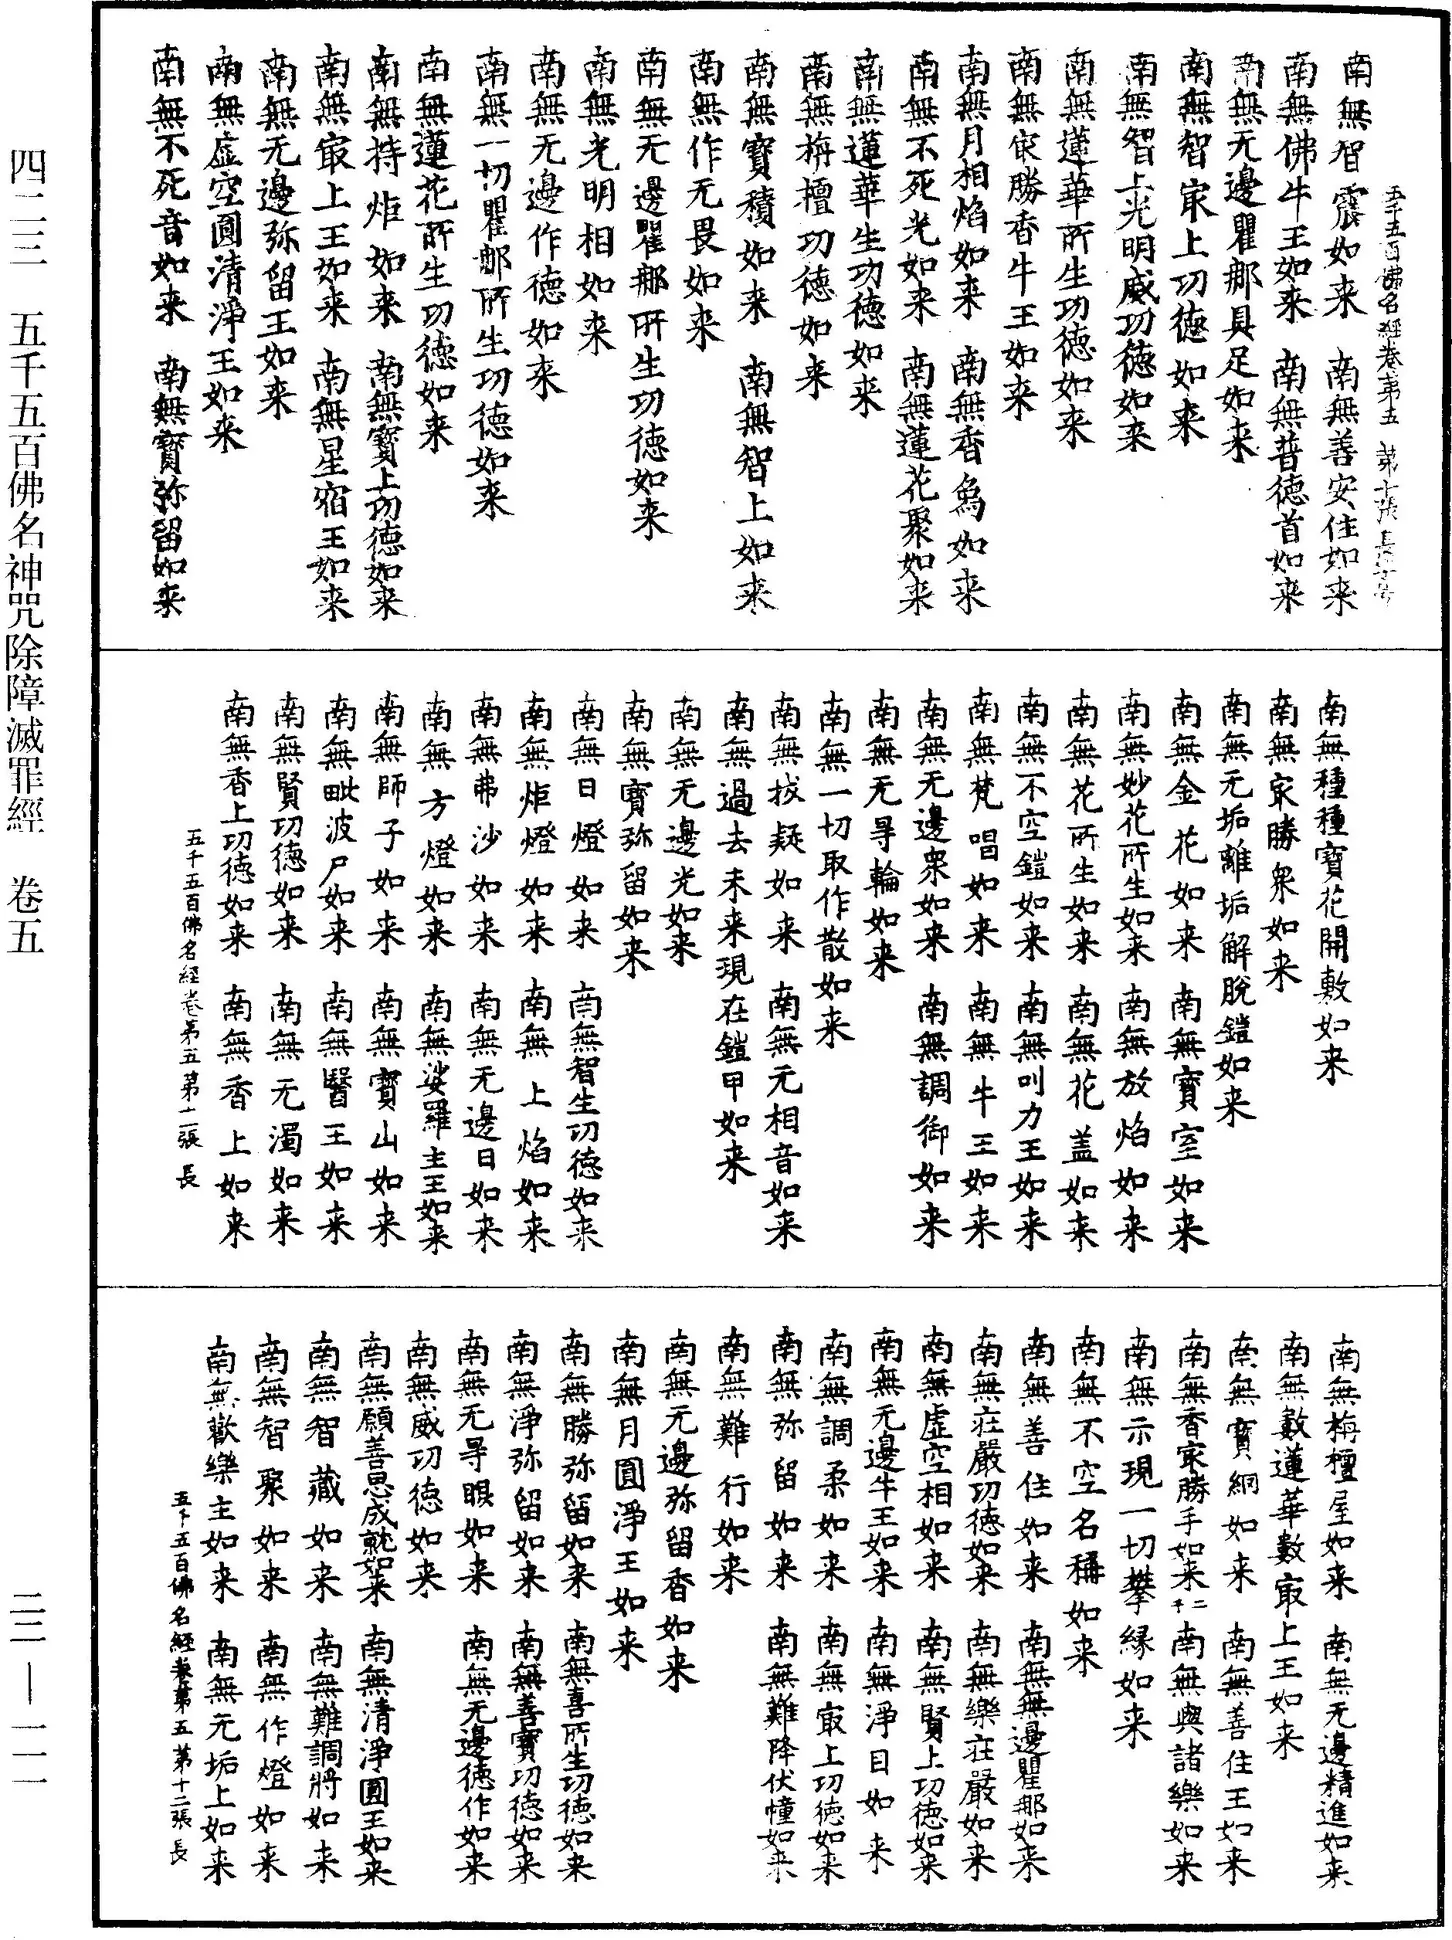 五千五百佛名經卷第五　第十張　長
南無智震如来　南無善安住如来
南無佛牛王如来　南無普德首如来
南無无邊瞿那具足如来
南無智㝡上功德如来
南無智上光明威功德如来
南無蓮華所生功德如来
南無㝡勝香牛王如来
南無月相焰如来　南無香烏如来
南無不死光如来　南無蓮花聚如来
南無蓮華生功德如来
南無栴檀功德如来
南無寶積如来　南無智上如来
南無作无畏如来
南無无邊瞿那所生功德如来
南無光明相如来
南無无邊作德如来
南無一切瞿那所生功德如来
南無蓮花所生功德如来
南無持炬如来　南無寶上功德如来
南無㝡上王如来　南無星宿王如来
南無无邊弥留王如来
南無虛空圓清淨王如来
南無不死音如来　南無寶弥留如来
南無種種寶花開敷如来
南無㝡勝衆如来
南無无垢離垢解脫鎧如来
南無金花如来　南無寶室如来
南無妙花所生如来　南無放焰如来
南無花所生如来　南無花盖如来
南無不空鎧如来　南無叫力王如来
南無梵唱如来　南無牛王如来
南無无邊衆如来　南無調御如来
南無无㝵輪如来
南無一切取作散如来
南無拔疑如来　南無无相音如来
南無過去未来現在鎧甲如来
南無无邊光如来
南無寶弥留如来
南無日燈如来　南無智生功德如来
南無炬燈如来　南無上焰如来
南無弗沙如来　南無无邊日如来
南無方燈如来　南無娑羅主王如来
南無師子如来　南無寶山如来
南無毗波尸如来　南無醫王如来
南無賢功德如来　南無无濁如来
南無香上功德如来　南無香上如来
五千五百佛名經卷第五　第十一張　長
南無栴檀屋如来　南無无邊精進如来
南無數蓮華數㝡上王如来
南無寶網如来　南無善住王如来
南無香㝡勝手如来二千　南無與諸樂如来
南無示現一切攀縁如来
南無不空名稱如来
南無善住如来　南無無邊瞿那如来
南無莊嚴功德如来　南無樂莊嚴如来
南無虛空相如来　南無賢上功德如来
南無无邊牛王如来　南無淨目如来
南無調柔如来　南無㝡上功德如来
南無弥留如来　南無難降伏幢如来
南無難行如来
南無无邊弥留香如来
南無月圓淨王如来
南無勝弥留如来　南無喜所生功德如来
南無淨弥留如来　南無善寶功德如来
南無无㝵眼如来　南無无邊德作如来
南無威功德如来
南無願善思成就如来　南無清淨圓王如来
南無智藏如来　南無難調將如来
南無智聚如来　南無作燈如来
南無歡樂主如来　南無无垢上如来
五千五百佛名經卷第五　第十二張　長
四二三　五千五百佛名神咒除障滅罪經　卷五
二二—一一